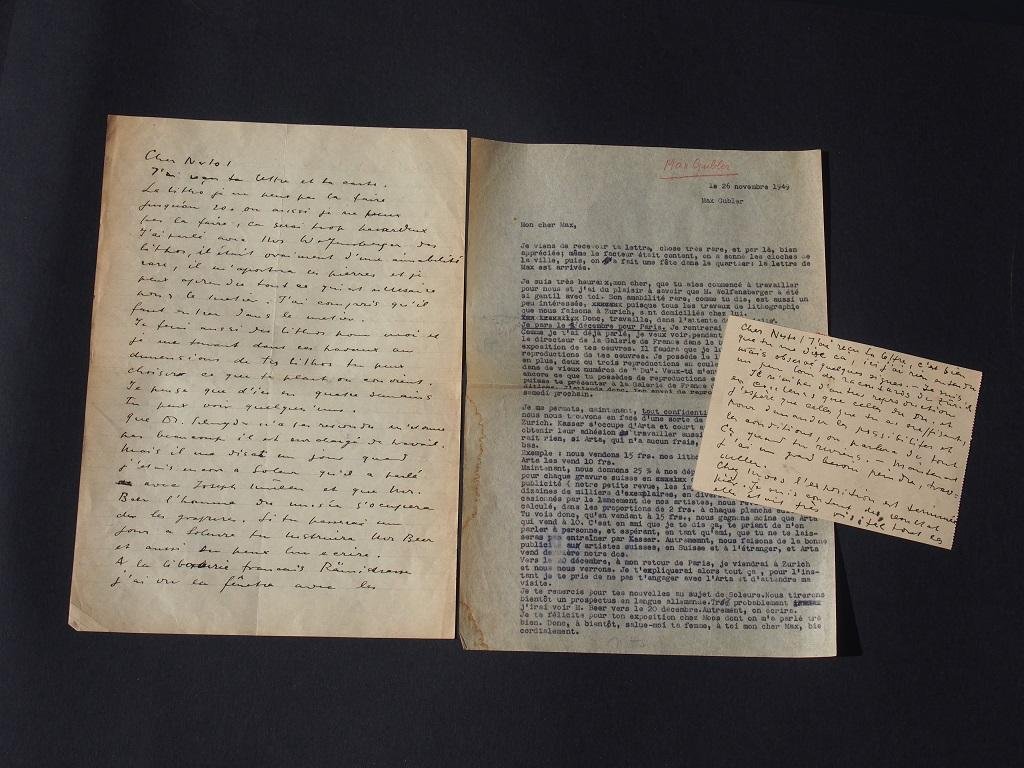 Cher Nesto!
J'ai reçu ta lettre et ta carte.
La litho je ne peux pas la faire
jusqu'au 20 ou aussi je ne peux
pas la faire, ça serai trop
J'ai parlé avec Mrs Wolfensberger des
lithos, il était vraiment d'une amabilité
rare, il m'apportera les pierres et je
peux apprendre tout ce qui est nécessaire
pour le metier. J'ai compris qu'il
faut entrer dans le metier.
Je ferai aussi des lithos pour moi et
je me tenant dans ces travaux au
dimensions de tes lithos tu peux
choisir ce que te plait ou convient.
Je pense que d'ici en quatre semaines
Tu peux voir quelqu'unes
que Dr.
pas beaucoup il est surchargé de travail.
Mais il me disait un jour quand
j'étais encore a Soleure qu'il a parlé
avec Joseph Müller et que Mr.
Beer l'homme du musée s'occupera
des les gravures. Si tu penses
pour Soleure tu Mrs Beer
et aussi tu peux lui écrire.
A la librairie français Rämistrasse
j'ai vu la fenêtre avec les
Max Gubler
le 26 novembre 1949
Max Gubler
Mon cher Max,
Je viens de recevoir ta lettre, chose très rare, et par là, bien
appréciée; même le facteur était content, on a sonné les cloches de
la ville, puis, on a fait une fête dans le quartier: la lettre de
Max est arrivée.
Je suis très heureux, mon cher, que tu aies commencé à travailler
pour nous et j'ai du plaisir à savoir que M. Wolfensberger a été
si gentil avec toi. Son amabilité rare, comme tu dis, est aussi un
peu intéressée, xxxxxxx puisque tous les travaux de lithographie
que nous faisons à Zurich, sont domiciliés chez lui.
Donc, travaille, dans l'attente de
Je pars le 2 décembre pour Paris. Je rentrerai
Comme je t'ai déjà parlé, je veux voir, pendant
le directeur de la Galerie de France dans le
exposition de tes oeuvres. Il faudra que je
reproductions de tes oeuvres. Je possède le
en plus, deux ou trois reproductions en coule
dans de vieux numéros de " Du". Veux-tu m'en
encore que tu possèdes de reproductions e
puisse te présenter à la Galerie de France
donc, de
samedi prochain.
Je me permets, maintenant, tout confidenti
nous nous trouvons en face d'une sorte de
Zurich. Kasser s'occupe d'Arta et court
obtenir leur adhésion travailler aussi
rait rien, si Arta, qui n'a aucun frais,
bas.
Exemple : nous vendons 15 frs. nos lith
Arta les vend 10 frs.
Maintenant, nous donnons 25 % à nos dép
pour chaque gravure suisse en
publicité ( notre petite revue, les im
dizaines de milliers d'exemplaires, en diver
casionnés par le lancement de nos artistes, nous re
calculé, dans les proportions de 2 frs. à chaque planche
Tu vois donc, qu'en vendant à 15 frs., nous gagnons moins que Arta
qui vend à 10. C'est en ami que je te dis ça, te priant de n'en
parler à personne, et espérant, en tant qu'ami, que tu ne te lais-
seras pas entraîner par Kasser. Autrement, nous faisons de la bonne
publicité aux artistes suisses, en Suisse et à l'étranger, et Arta
vend derrière notre dos.
Vers le 20 décembre, à mon retour de Paris, je viendrai à Zurich
et nous nous verrons. Je t'expliquerai alors tout ça, pour l'ins-
tant je te prie de ne pas t'engager avec l'Arta et d'attendre ma
visite.
Je te remercie pour tes nouvelles au sujet de Soleure. Nous tirerons
bientôt un prospectus en langue allemande. Très probablement
j'irai voir M. Beer vers le 20 décembre. Autrement, on écrira.
Je te félicite pour ton exposition chez Moos dont on m'a parlé très
bien. Donc, à bientôt, salue-moi ta femme, à toi mon cher Max, bie
cordialement.
Cher Nesto! J'ai reçu ta lettre, c'est bien
que tu me dise ça, j'ai rien entendu
mais observé quelques signes. Je suis
un peu loin des racontards de Zurich.
Je n'ai pas d'autres reproductions
en couleurs que celles du Du, et
j'espère que celles que as suffisent,
pour demander les possibilités et
les conditions, on parlera du tout
ça quand tu reviens. Maintenant
j'ai un grand besoin, peindre, trav-
ailler.
Chez Moos l'exposition est terminée
Je suis content du contact
elle était très visitée tout les